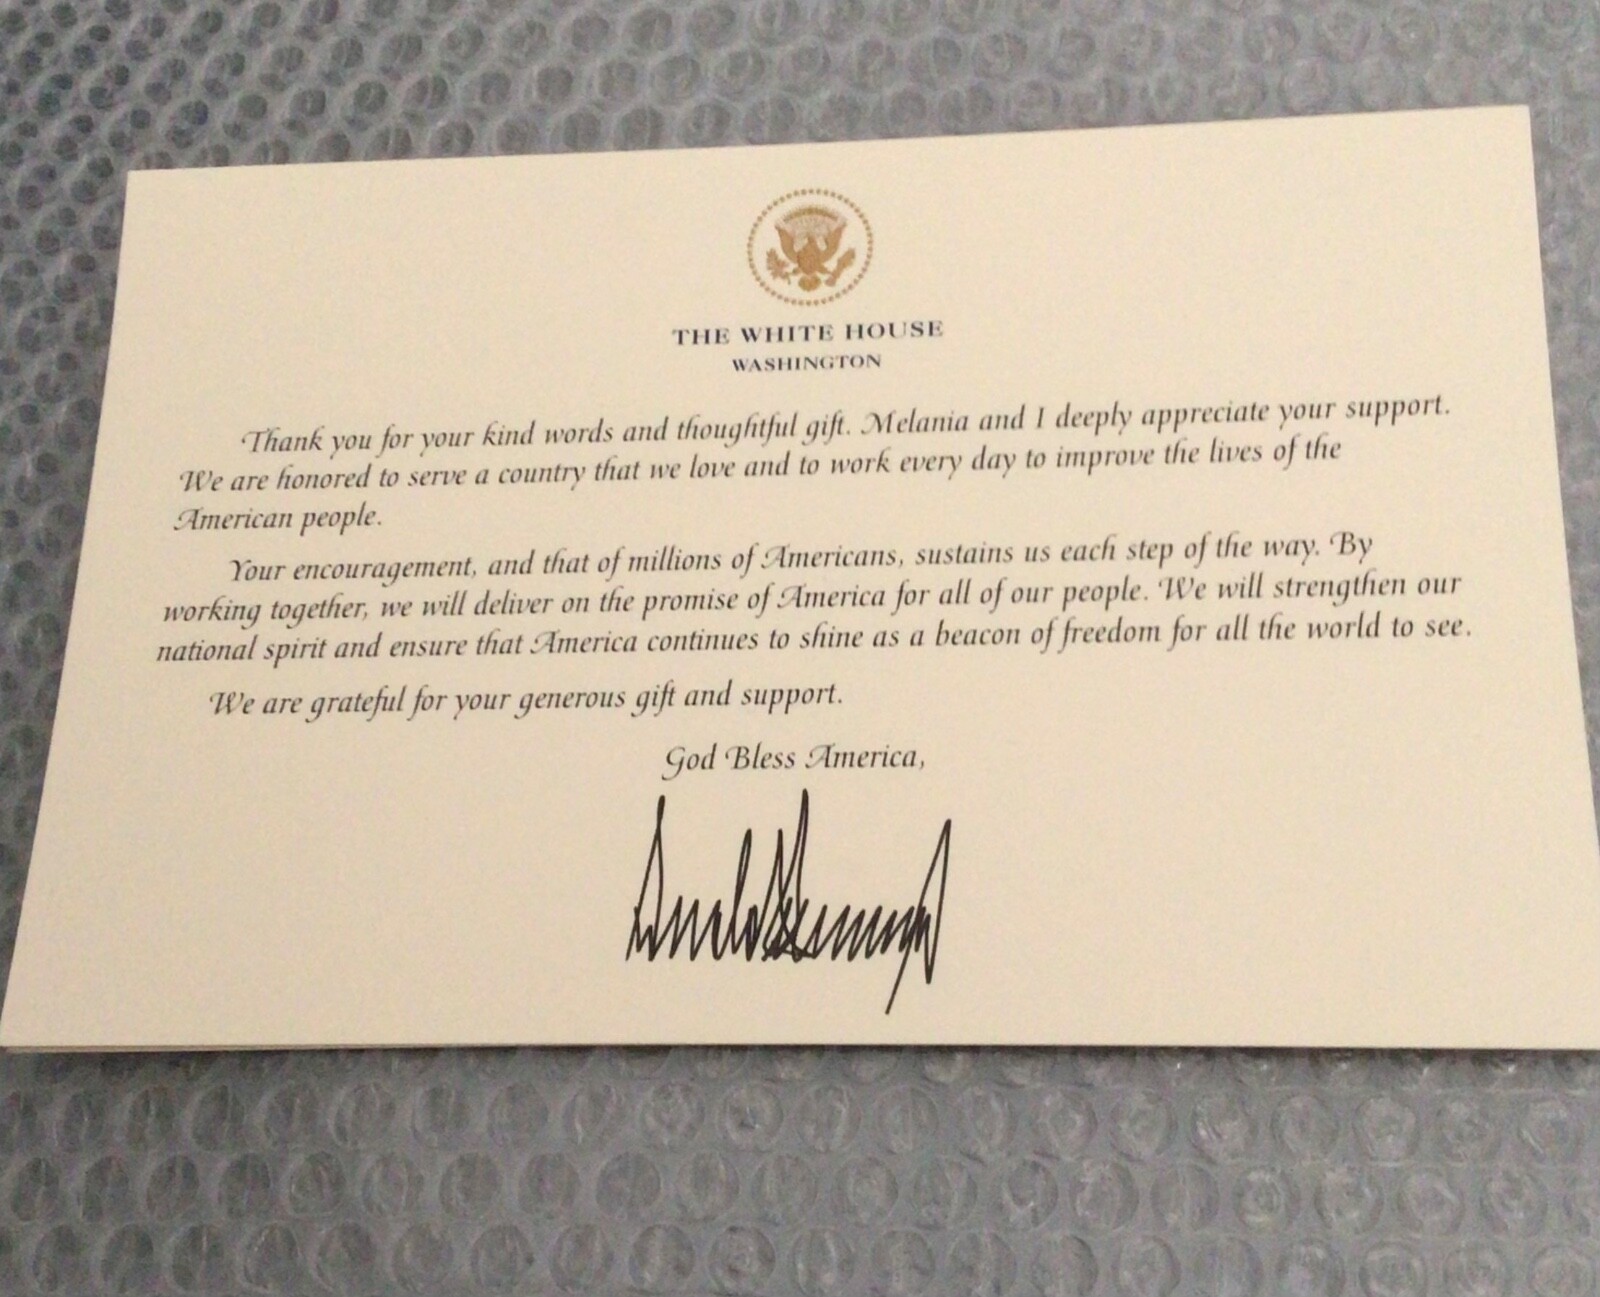 THE WHITE HOUSE
WASHINGTON
Thank you for your kind words and thoughtful gift. Melania and I deeply appreciate your support.
We are honored to serve a country that we love and to work every day to improve the lives of the
American people.
Your encouragement, and that of millions of Americans, sustains us each step of the way. By
working together, we will deliver on the promise of America for all of our people. We will strengthen our
national spirit and ensure that America continues to shine as a beacon of freedom for all the world to see.
We are grateful for your generous gift and support.
God Bless America,